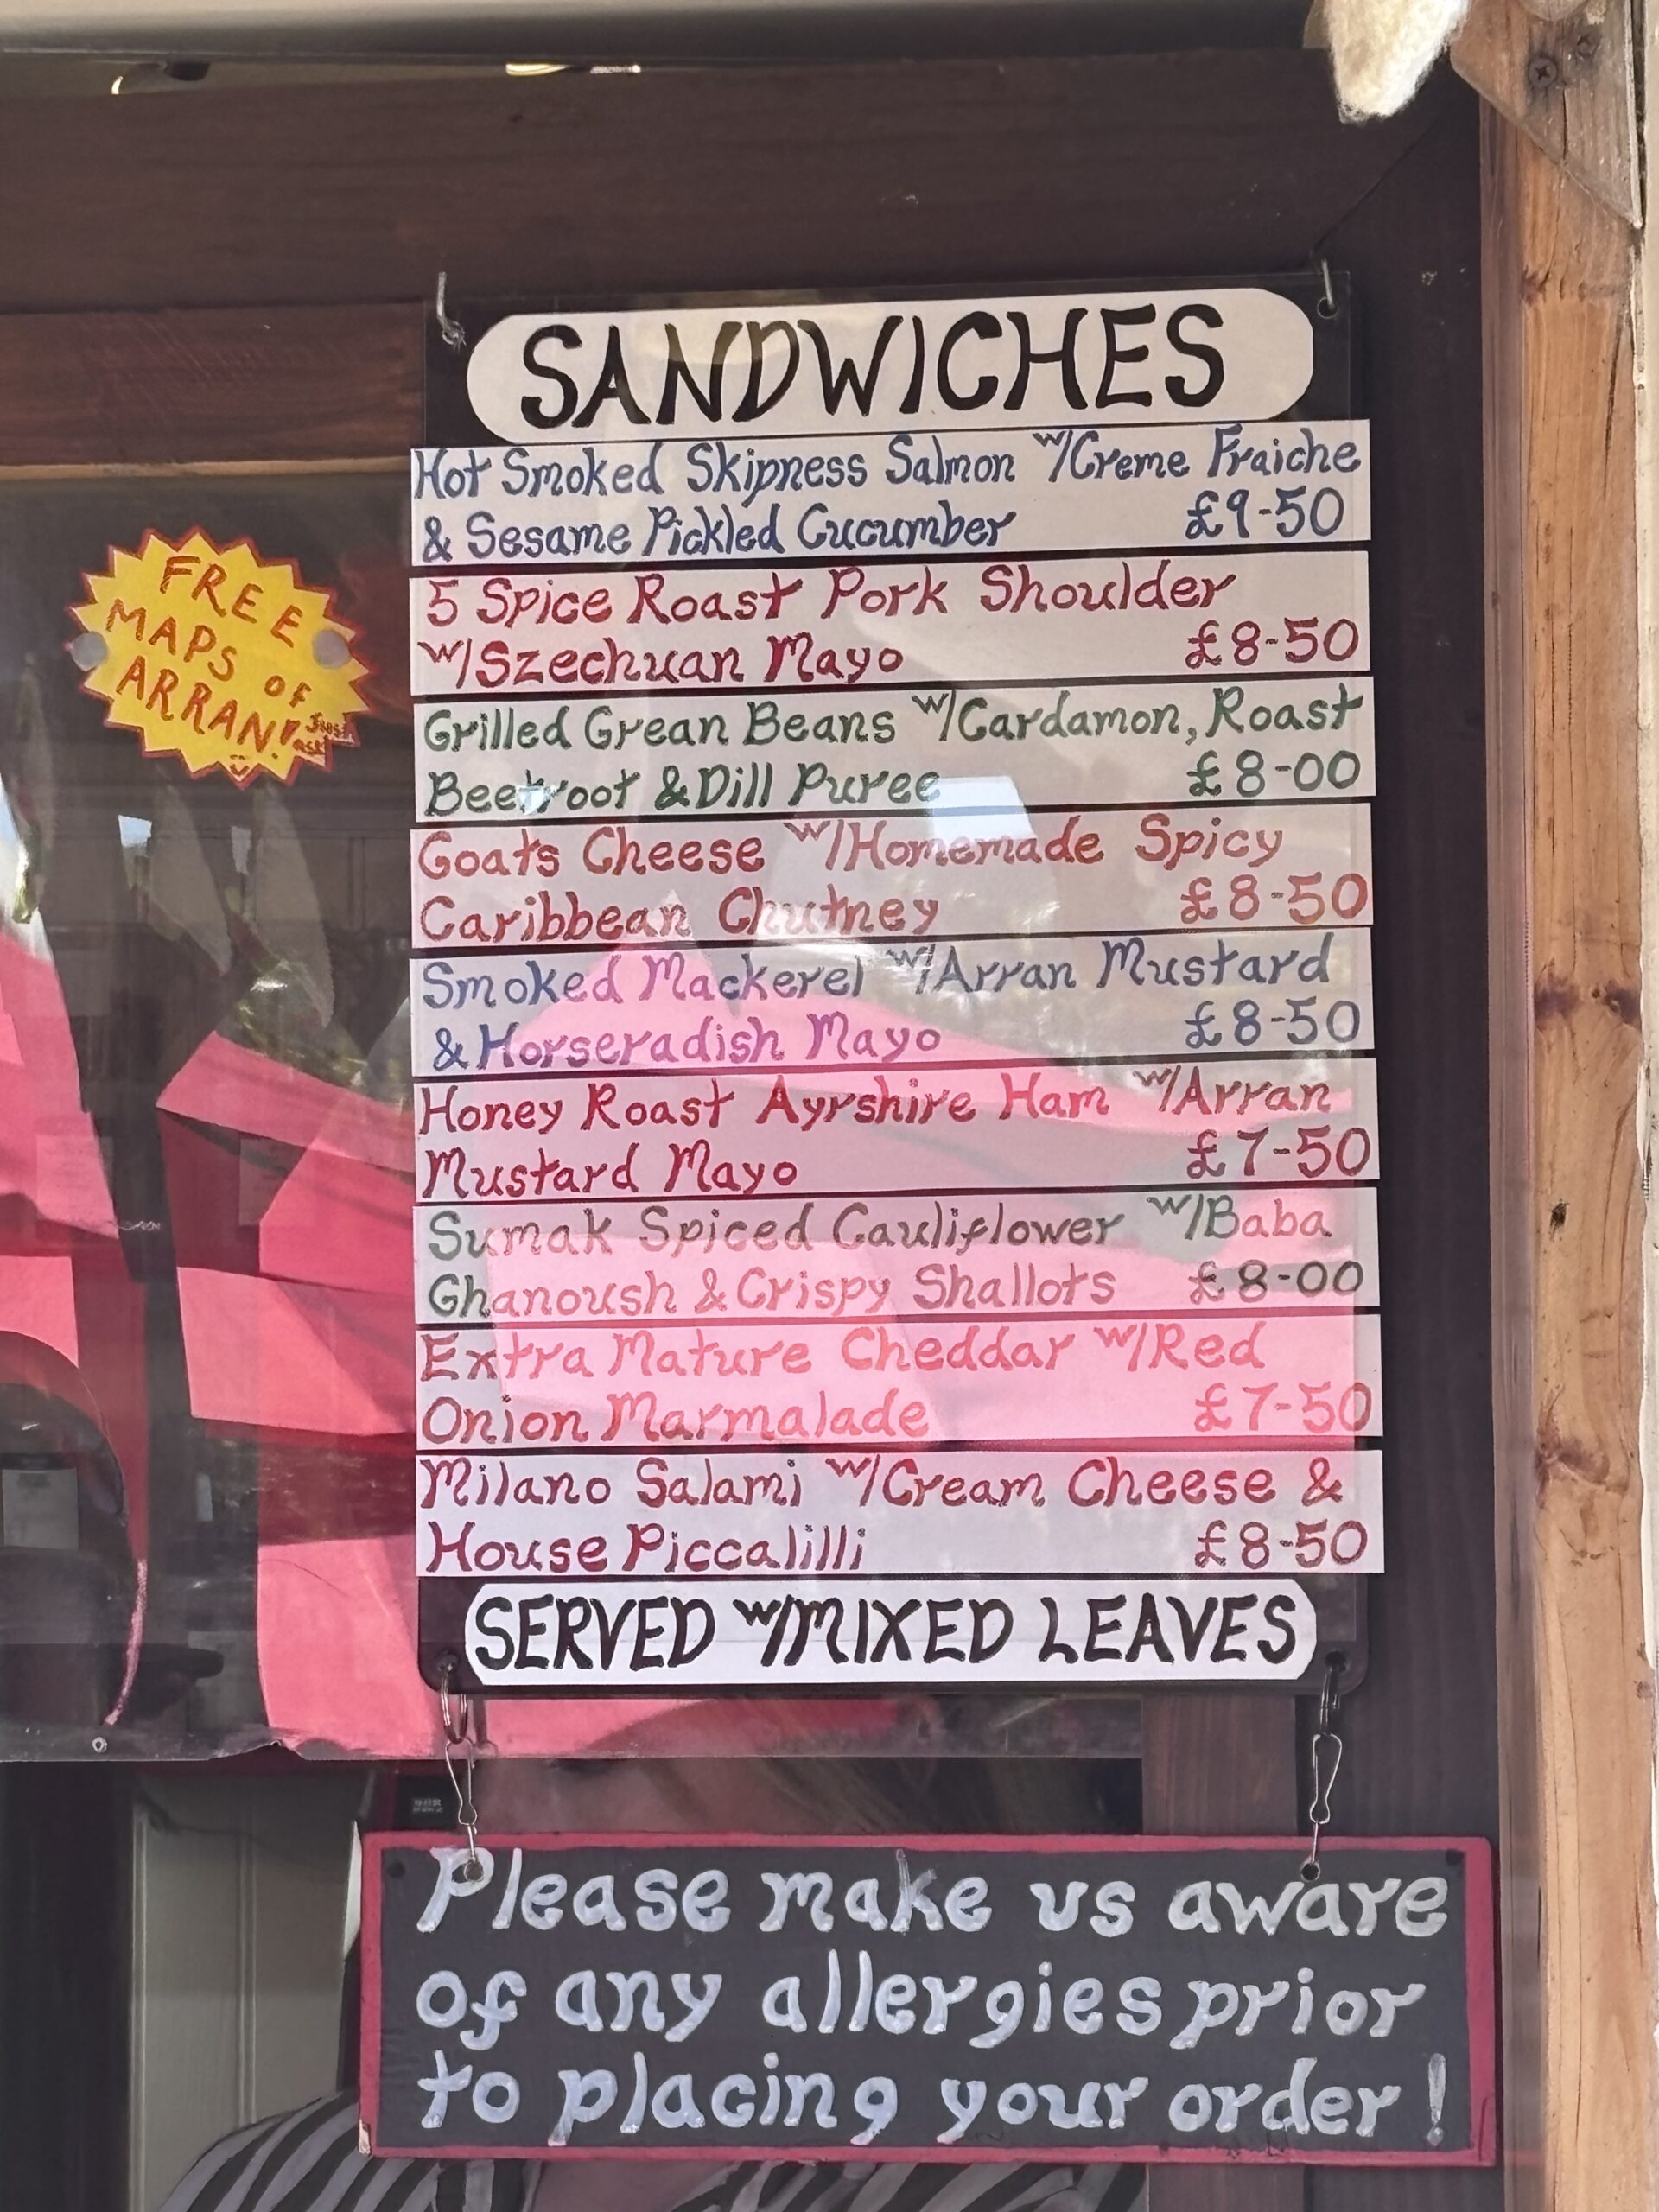 SANDWICHES
Hot Smoked Skipness Salmon w/Creme Fraiche
& Sesame Pickled Cucumber £9-50
5 Spice Roast Pork Shoulder
w/Szechuan Mayo £8-50
Grilled Grean Beans w/Cardamon, Roast
Beetroot & Dill Puree £8-00
Goats Cheese w/Homemade Spicy
Caribbean Chutney £8-50
Smoked Mackerel w/Arran Mustard
& Horseradish Mayo £8-50
Honey Roast Ayrshire Ham w/Arran
Mustard Mayo £7-50
Sumak Spiced Cauliflower w/Baba
Ghanoush & Crispy Shallots £8-00
Extra Mature Cheddar w/Red
Onion Marmalade £7-50
Milano Salami w/Cream Cheese &
House Piccalilli £8-50
SERVED w/MIXED LEAVES
FREE
MAPS OF
ARRAN!
Just
ask
Please make us aware
of any allergies prior
to placing your order!